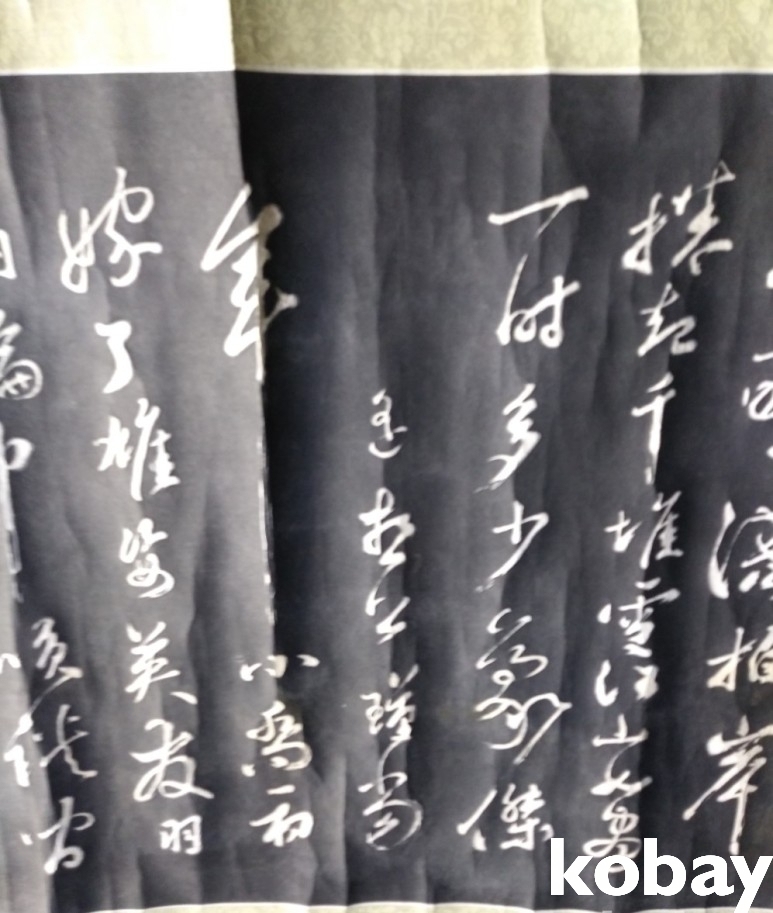 濤拍岸
捲起千堆雪江山如畫
一时多少豪傑
遥想公瑾當
年小喬初
嫁了雄姿英发羽
談